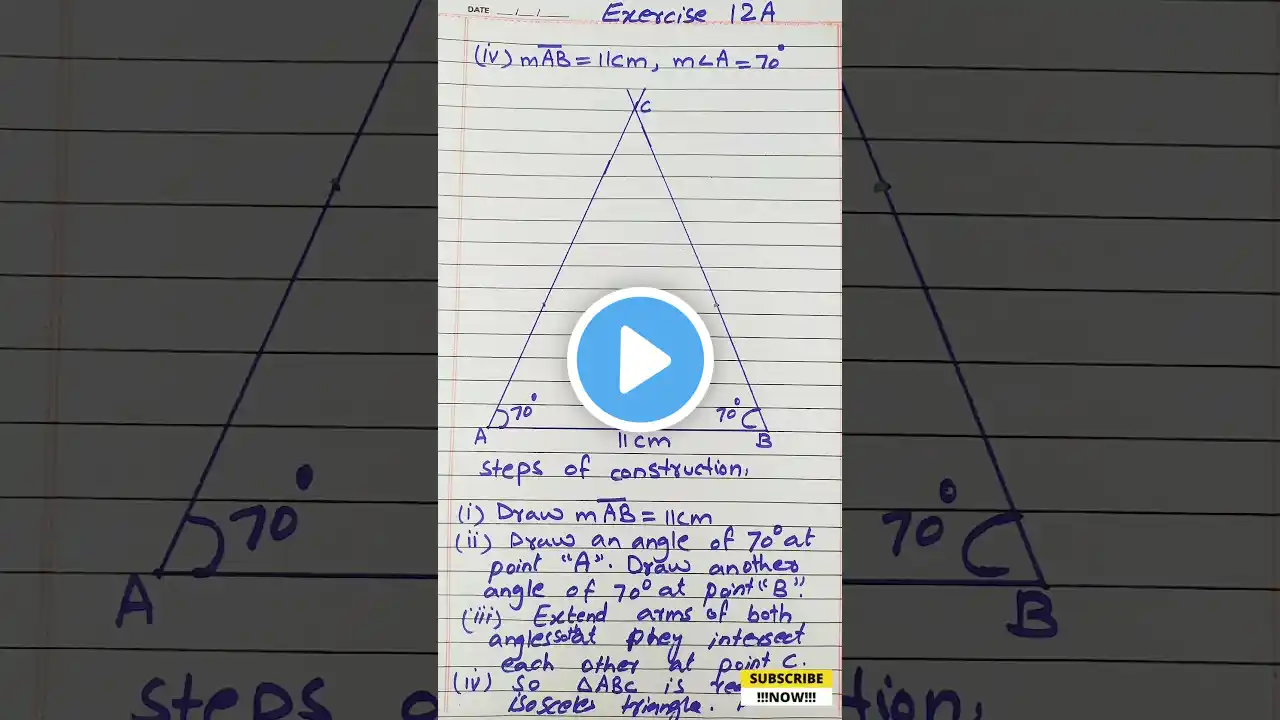 DATE __/__/____
Exercise 12A
(iv) mAB = 11cm, m<A = 70°
C
70°
70°
A
11cm
B
steps of construction.
(i) Draw mAB = 11cm
(ii) Draw an angle of 70° at
point "A". Draw another
angle of 70° at point "B".
(iii) Extend arms of both
angles so that they intersect
each other at point C.
(iv) So △ABC is
isosceles triangle.
SUBSCRIBE
!!!NOW!!!
70°
70°
A
B
steps